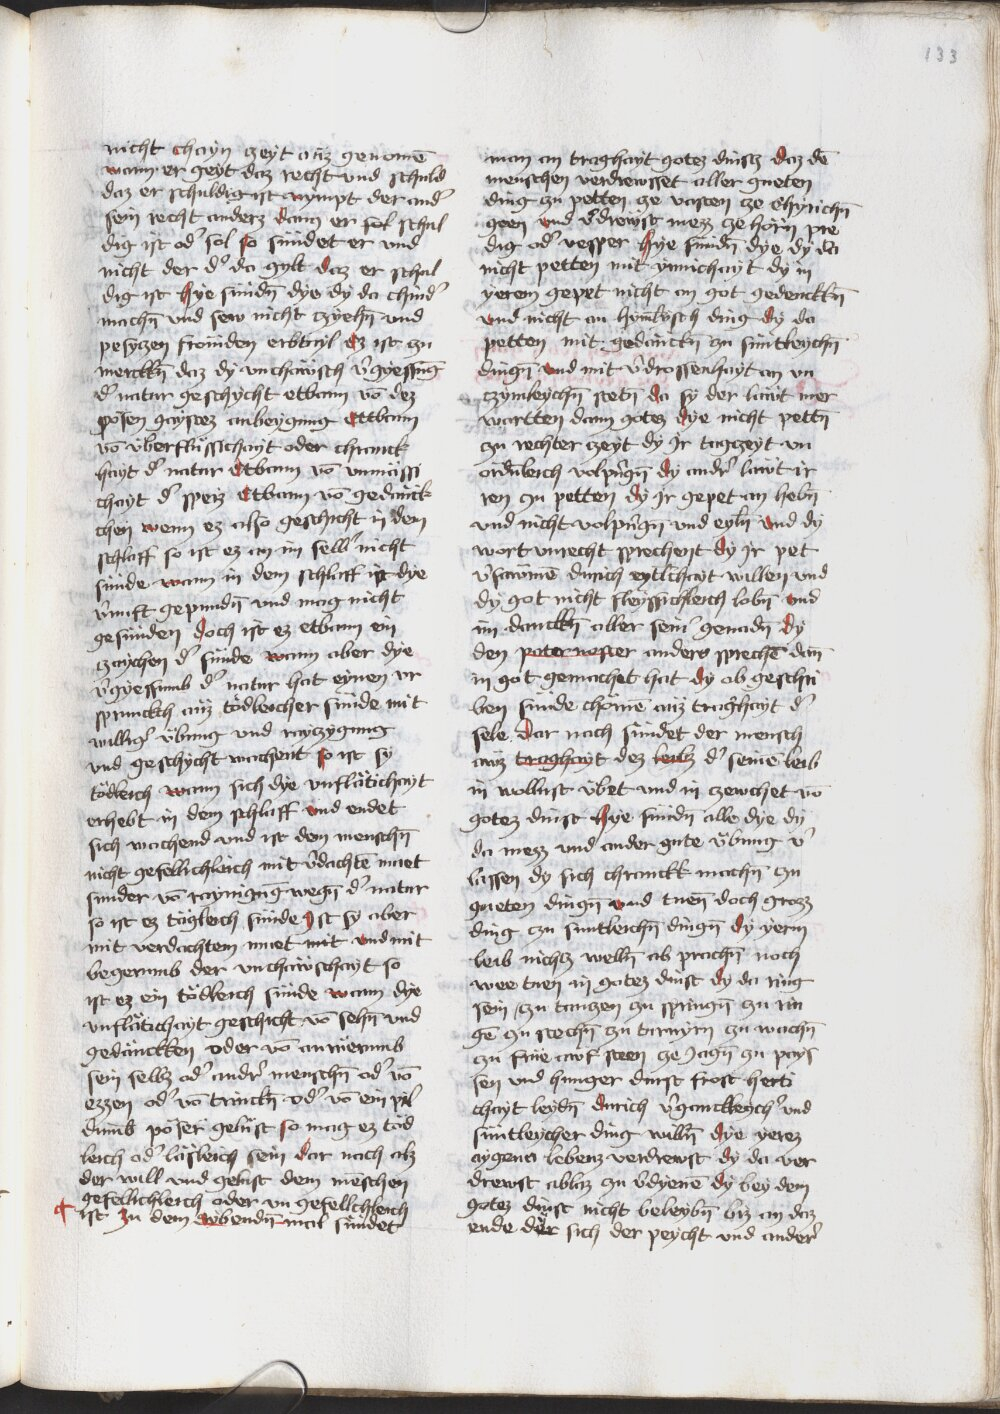 133
nicht chayn zeyt auz genomē
wann er geyt daz recht vnd schuld
daz er schuldig ist nympt der and᾽
sein recht anderz dann er sol schul
dig ist od᾽ sol so sündet er vnd
nicht der d᾽ da gylt daz er schul
dig ist Hye sündn̄ dye dy da chind᾽
machn̄ vnd sew nicht czyehn̄ vnd
pesyczen frömden erbtayl Ez ist zu
merckn̄ daz dy vnchäwsch v᾽gyessūg
d᾽ natur geschycht etbann vō dez
pösen gaystez anbeygung Ettbann
vō v̈berflüssichayt oder chranck
hayt d᾽ natur Etbann vō vnmässi
chayt d᾽ speiz Etbann vō gedänck
chen wenn ez also geschicht in dem
schlaff so ist ez an im selb᾽ nicht
sünde wann in dem schlaff ist dye
v᾽nuft gepundn̄ vnd mag nicht
gesünden doch ist ez etbann ein
zaychen d᾽ sünde wann aber dye
v᾽gyessumb d᾽ natur hat eynen vr
sprunckh auz tödleicher sünde mit
willig᾽ v̈bung vnd rayczygung
vnd geschycht wachent so ist sy
tödleich wann sich dye vnflätichayt
erhebt in dem schlaff vnd endet
sich wachend vnd ist dem menschn̄
nicht gefellichleich mit v᾽dachtē muet
sunder vō raynigūg wegn̄ d᾽ natur
so ist ez tägleich sünde Ist sy aber
mit verdachtem muet mit vnd mit
begerumb der vnchäwschayt so
ist ez ein tödleich sünde wann dye
vnflätichayt geschicht vō sehn̄ vnd
gedänckken oder vō anruerumb
sein selbz od᾽ andr᾽ menschn̄ od᾽ vō
ezzen od᾽ vō trinckn̄ od᾽ vō ein pil᾽
dumb pöser gelüst so mag ez töd
leich od᾽ läsleich sein dar nach alz
der will vnd gelust dem mēschen
gefellichleich oder vn gefellichleich
ist Zu dem sybendn̄ mal sündet
man an traghayt gotez dinstz daz dē
menschen verdrewsset aller gueten
ding zu petten ze vasten ze chyrichn̄
geen vnd v᾽drewst mezz ze hörn pre
dig od᾽ vesper Hye sündn̄ dye dy da
nicht petten mit ynnichayt dy in
yerem gepet nicht an got gedenckn̄
vnd nicht an hymlysch ding dy da
petten mit gedänckn̄ zu süntleychn̄
dingn̄ vnd mit v᾽drossenhayt an vn
czymleychn̄ stetn̄ da sy der läwt mer
wartten dann gotez dye nicht pettn̄
zu rechter zeyt dy Jr tagzeyt vn
ordnleich volpringn̄ dy andr᾽ läwt ir
ren zu petten dy Jr gepet an hebn̄
vnd nicht volpringn̄ vnd eyln̄ vnd dy
wort vnrecht sprechent dy Jr pet
v᾽sawmē durich eytlchayt willen vnd
dy got nicht fleyssichleich lobn̄ vnd
im danckn̄ aller sein᾽ genadn̄ dy
den pater noster anders sprechē dan̄
in got gemachet hat dy ob geschri
ben sünde chöme auz traghayt d᾽
sele dar nach sündet der mensch
auz traghayt dez leibz d᾽ seinē leib
in wollust v̈bet vnd in czewchet vō
gotez dinst Hye sündn̄ alle dye dy
da mezz vnd ander gute v̈bung v᾽
lassen dy sich chranckk machn̄ zu
gueten dingn̄ vnd tuen doch grozz
ding zu suntleichn̄ dingn̄ dy yerm
leib nichtz welln̄ ab prechn̄ noch
wee tuen in gotez dinst dy da ring
sein zu tanzen zu springn̄ zu rin
gē zu stechn̄ zu turnyrn zu wachn̄
zu frue awf steen ze Jagn̄ zu pays
sen vnd hunger durst frost herti
chayt leydn̄ durich v᾽gancklych᾽ vnd
süntleycher ding willn̄ dye yerez
aygenn lebenz verdrewst dy da ver
drewst ablaz zu v᾽dyenē dy bey dem
gotez dinst nicht beleybn̄ biz an daz
ende der sich der peycht vnd ander᾽